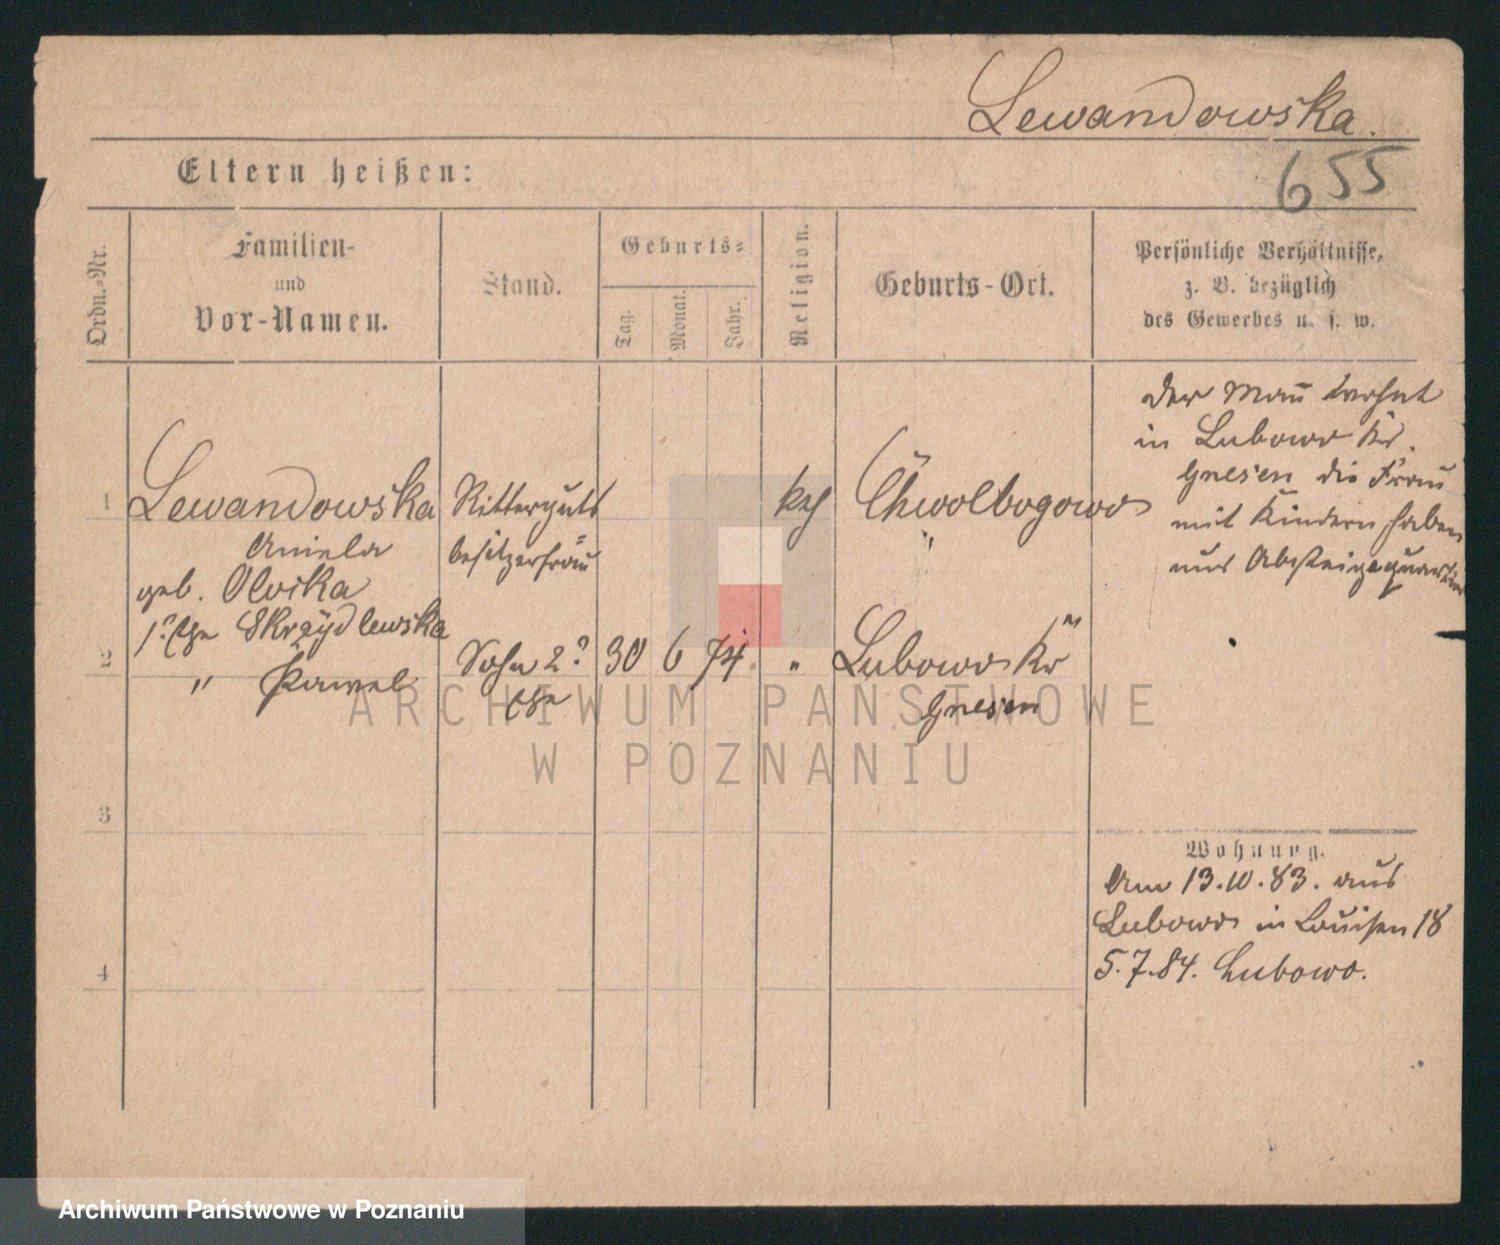 Lewandowska.
655
Eltern heißen:
Ordn.-Nr.
Familien-
und
Vor-Namen.
Stand.
Geburts-
Tag.
Monat.
Jahr.
Religion.
Geburts-Ort.
Persönliche Verhältnisse,
z. B. bezüglich
des Gewerbes u. s. w.
1
Lewandowska
Aniela
geb.
1. Ehe Skrzydlewska
Ritterguts
besitzerfrau
kth
Chwolbogowo
"
der Mann wohnt
in Lubowo Kr.
Gnesen die Frau
mit Kindern haben
nur Absteigequartier
2
" Pawel
Sohn 2.
Ehe
30 6 74.
"
Lubowo Kr
Gnesen
3
4
Wohnung.
Am 13.10.83. aus
Lubowo in Louisen 18
5.7.84. Lubowo.
ARCHIWUM PAŃSTWOWE
W POZNANIU
Archiwum Państwowe w Poznaniu